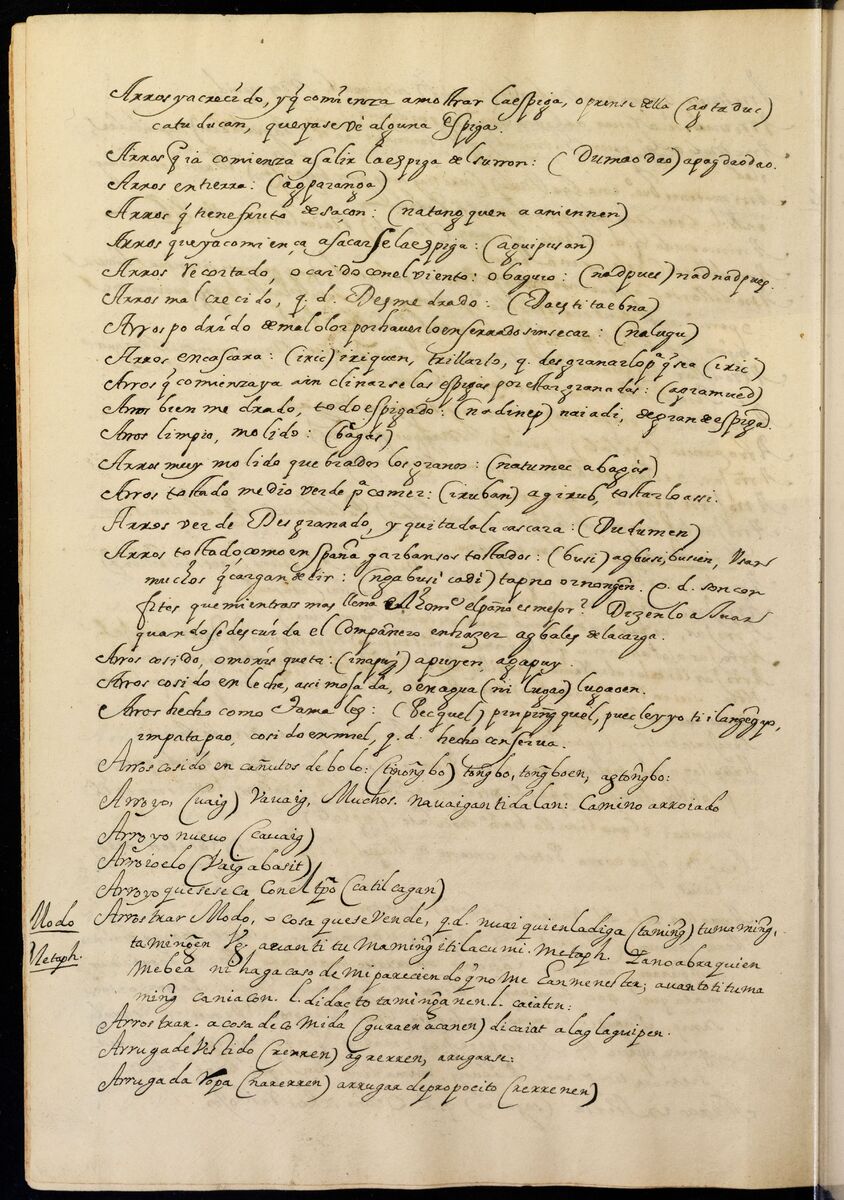 Arros ya crecido, y q̃ comiẽnza a mostrar la espiga, o prense della (agtaduc)
catuducan, que ya se vé alguna espiga.
Arros q̃ ia comienza a salir la espiga del surron: (Dumaodao) apagdaodao.
Arros en tierra: (agparanga)
Arros q̃ tiene fruto de saçon: (natangquen a aniennen)
Arros que ya comiença a sacarse la espiga: (aguipusan)
Arros recortado, o caido con el viento: o baguio: (nadpues) nadnadpues.
Arros mal crecido, q. d. Desmedrado: (Daestitaebna)
Arros podrído de mal olor por haverlo enserrado sin secar: (nalugu)
Arros en cascara: (iric) iriquen, trillarlo, q. desgranarlo pª q̃ sea (iric)
Arros q̃ comienza ya ainclinarse las espigas por estar granadas: (agramued)
Arros bien medrado, todo espigado: (nadinep) naiadi, de grande espiga.
Arros limpio, molido: (bagas)
Arros muy molido quebrados los granos: (natumec a bagàs)
Arros tostado medio verde pª comer: (iruban) agirub, tostarlo assi.
Arros verde Desgranado, y quitada la cascara: (Dudumen)
Arros tostado, como en españa garbansos tostados: (busi) agbusi, busien, Usan
muchos q̃ cargan decir: (ngabusi cadi) tapno ornongen. q. d. son con
fites que mientras mas llena el home el paño es mejor? Dizenlo a Juan
quando se descuída el Compañero en hazer agbales de la carga.
Arros cosido, o morisqueta: (inapuy) apuyen, agapuy.
Arros cosido en leche, assi mosada, o en agua (ni lugao) lugaoen.
Arros hecho como Tamales: (Pecquel) pinpingquel, puecleyyo ti ilangengyo,
impatapao, cosido en miel, q. d. hecho conserva.
Arros cosido en cañutos de bolo: (tinongbo) tongbo, tongboen, agtongbo:
Arroyo, (uaig) Vauaig, Muchos. nauaigan ti dalan: Camino arroiado
Arroyo nuevo (cauaig)
Arroioelo (Vaig a basit)
Arroyo que se seca con el tp̃o (catilcagan)
Modo Arrostrar Modo, o cosa que se vende, q.d. nuai quien la diga (taming) tumaming,
Metaph. tamingen Vg. auan ti tumaming iti lacumi. Metaph. Ya no abra quien
me bea ni haga caso de mi pareciendo q̃ no me han menester; auanto ti tuma
ming caniacon. l. didacto tamingan en l. caiaten:
Arrostrar. a cosa de comida (guraen a canen) di caiat a laglaguipen.
Arruga de Vestido (rerren) agrerren, arrugarse:
Arrugada ropa (narerren) arrugar de propocito (rerrenen)